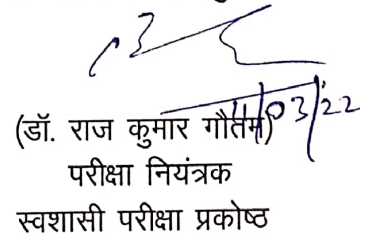 11/03/22
(डॉ. राज कुमार गौतम)
परीक्षा नियंत्रक
स्वशासी परीक्षा प्रकोष्ठ